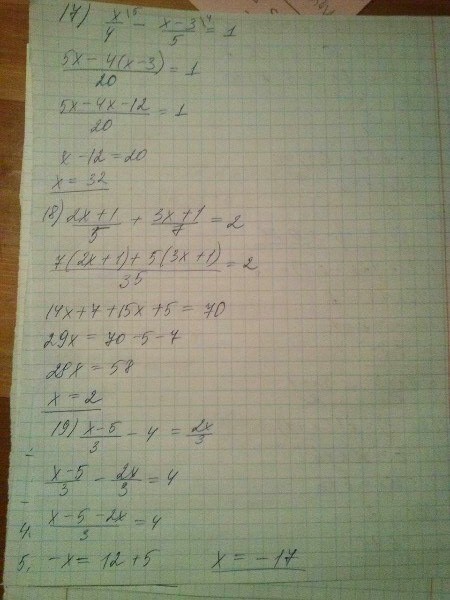 17) x\5/4 − x−3\4/5 = 1
5x−4(x−3)/20 = 1
5x−4x−12/20 = 1
x−12=20
x = 32
18) 2x+1/5 + 3x+1/7 = 2
7(2x+1)+5(3x+1)/35 = 2
14x+7+15x+5 = 70
29x = 70−5−7
29x = 58
x = 2
19) x−5/3 − 4 = 2x/3
x−5/3 − 2x/3 = 4
4. x−5−2x/3 = 4
5. −x = 12+5 x = −17